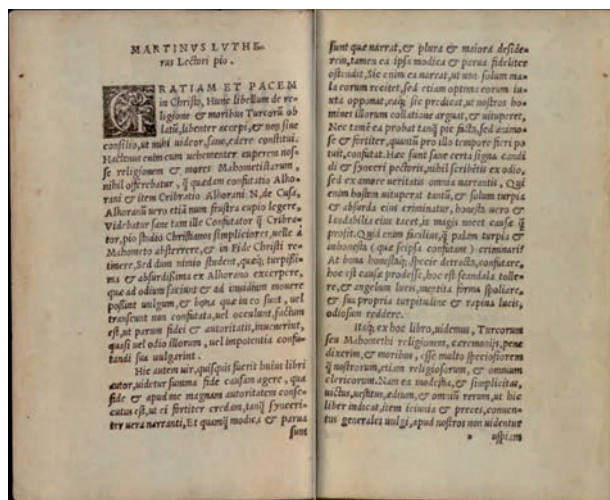 MARTINVS LVTHE-
rus Lectori pio.
GRATIAM ET PACEM
in Christo, Hunc libellum de re-
ligione & moribus Turcorũ ob
latũ, libenter accepi, & non sine
consilio, ut nisi uideor, sane, edere constitui.
Hactenus enim cum uehementer cuperem nos-
se religionem & mores Mahometistarum,
nihil offerebatur, q̃ quædam confutatio Alko-
rani & item Cribratio Alkorani N. de Cusa,
Alkoranũ uero etiã num frustra cupio legere,
Videbatur sane tam ille Confutator q̃ Cribra-
tor, pio studio Christianos simpliciores, uelle á
Mahometo absterrere, & in Fide Christi re-
tinere, Sed dum nimio student, quæq; turpißi-
ma & absurdißima ex Alkorano excerpere,
quæ ad odium faciunt & ad inuidium mouere
poßint uulgum, & bona quæ in eo sunt, uel
transeunt non confutata, uel occulunt, factum
est, ut parum fidei & autoritatis, inuenerint,
quasi uel odio illorum, uel impotentia confu-
tandi sua uulgarint.
Hic autem uir, quisquis fuerit huius libri
autor, uidetur summa fide causam agere, qua
fide & apud me magnam autoritatem conse-
cutus est, ut ei fortiter credam, tanq̃ synceri-
ter uera narranti, Et quamq̃ modica & parua
sunt
sunt quæ narrat, & plura & maiora deside-
rem, tamen ea ipsa modica & parua fideliter
ostendit, Sic enim ea narrat, ut non solum ma-
la eorum recitet, sed etiam optima eorum iu-
xta opponat, eaq; sic prædicat, ut nostros ho-
mines illorum collatione arguat, & uituperet,
Nec tamẽ ea probat tanq̃ pie facta, sed animo-
se & fortiter, quantũ pro illo tempore fieri po
tuit, confutat. Hæc sunt sane certa signa candi
di & synceri pectoris, nihil scribẽtis ex odio,
sed ex amore ueritatis omnia narrantis, Qui
enim hostem uituperat tantũ, & solum turpia
& absurda eius criminatur, honesta uero &
laudabilia eius tacet, is magis nocet causæ q̃
profit. Quid enim facilius, q̃ palam turpia &
inhonesta (quæ seipsa confutant) criminari?
At bona honestaq; specie detracta, confutare,
hoc est causæ prodesse, hoc est scandala tolle-
re, & angelum lucis, mentita forma spoliare,
& sua propria turpitudine & rapina lucis,
odiosum reddere.
Itaq; ex hoc libro, uidemus, Turcorum
seu Mahomethi religionem, ceremonijs, pene
dixerim, & moribus, esse multo speciosiorem
q̃ nostrorum, etiam religiosorum, & omnium
clericorum. Nam ea modestia, & simplicitas,
uictus, uestitus, ædium, & omniũ rerum, ut hic
liber indicat, item ieiunia & preces, conuen-
tus generales uulgi, apud nostros non uidentur
uspiam